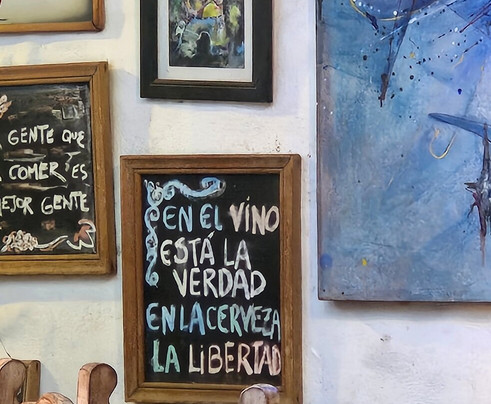 GENTE QUE
COMER ES
EJOR GENTE
EN EL VINO
ESTÁ LA
VERDAD
EN LA CERVEZA
LA LIBERTAD